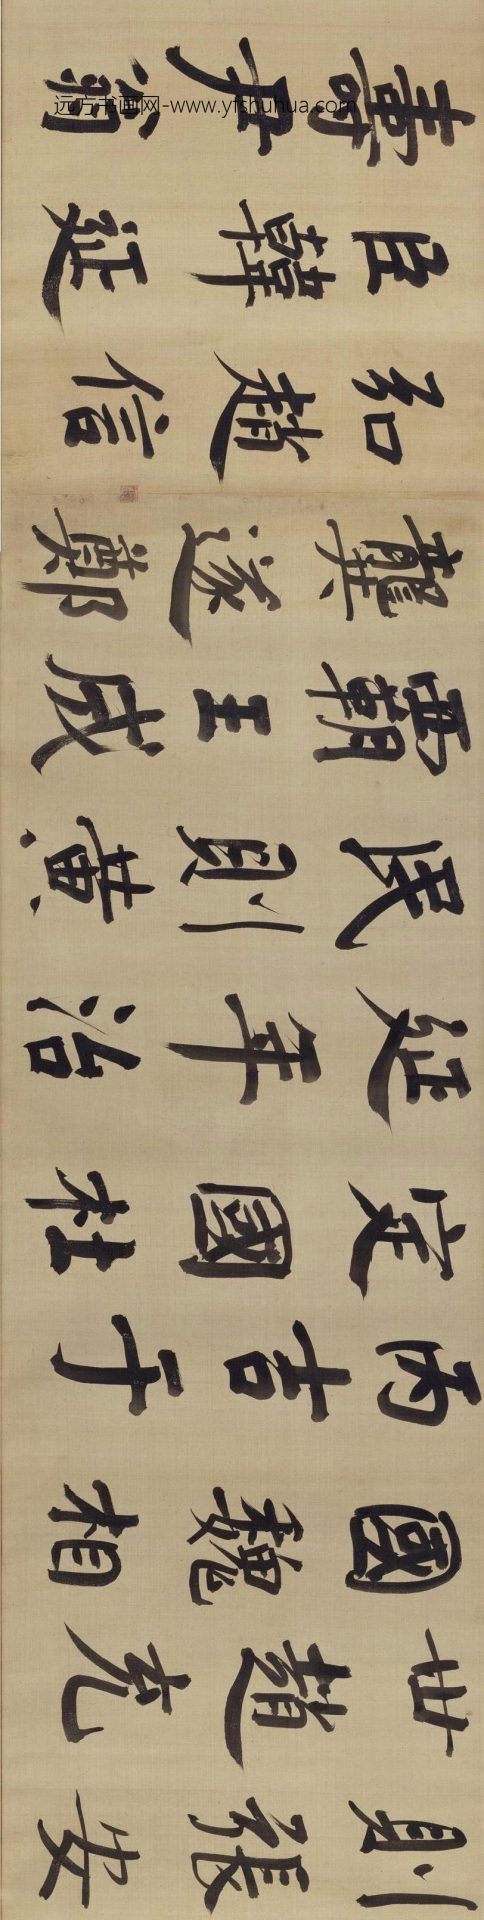 則張安
世趙充
國魏相
丙吉于
定國杜
延年治
民則黃
霸王成
龔遂鄭
弘趙信
臣韓延
壽尹翁
远方书画网-www.yfshuhua.com